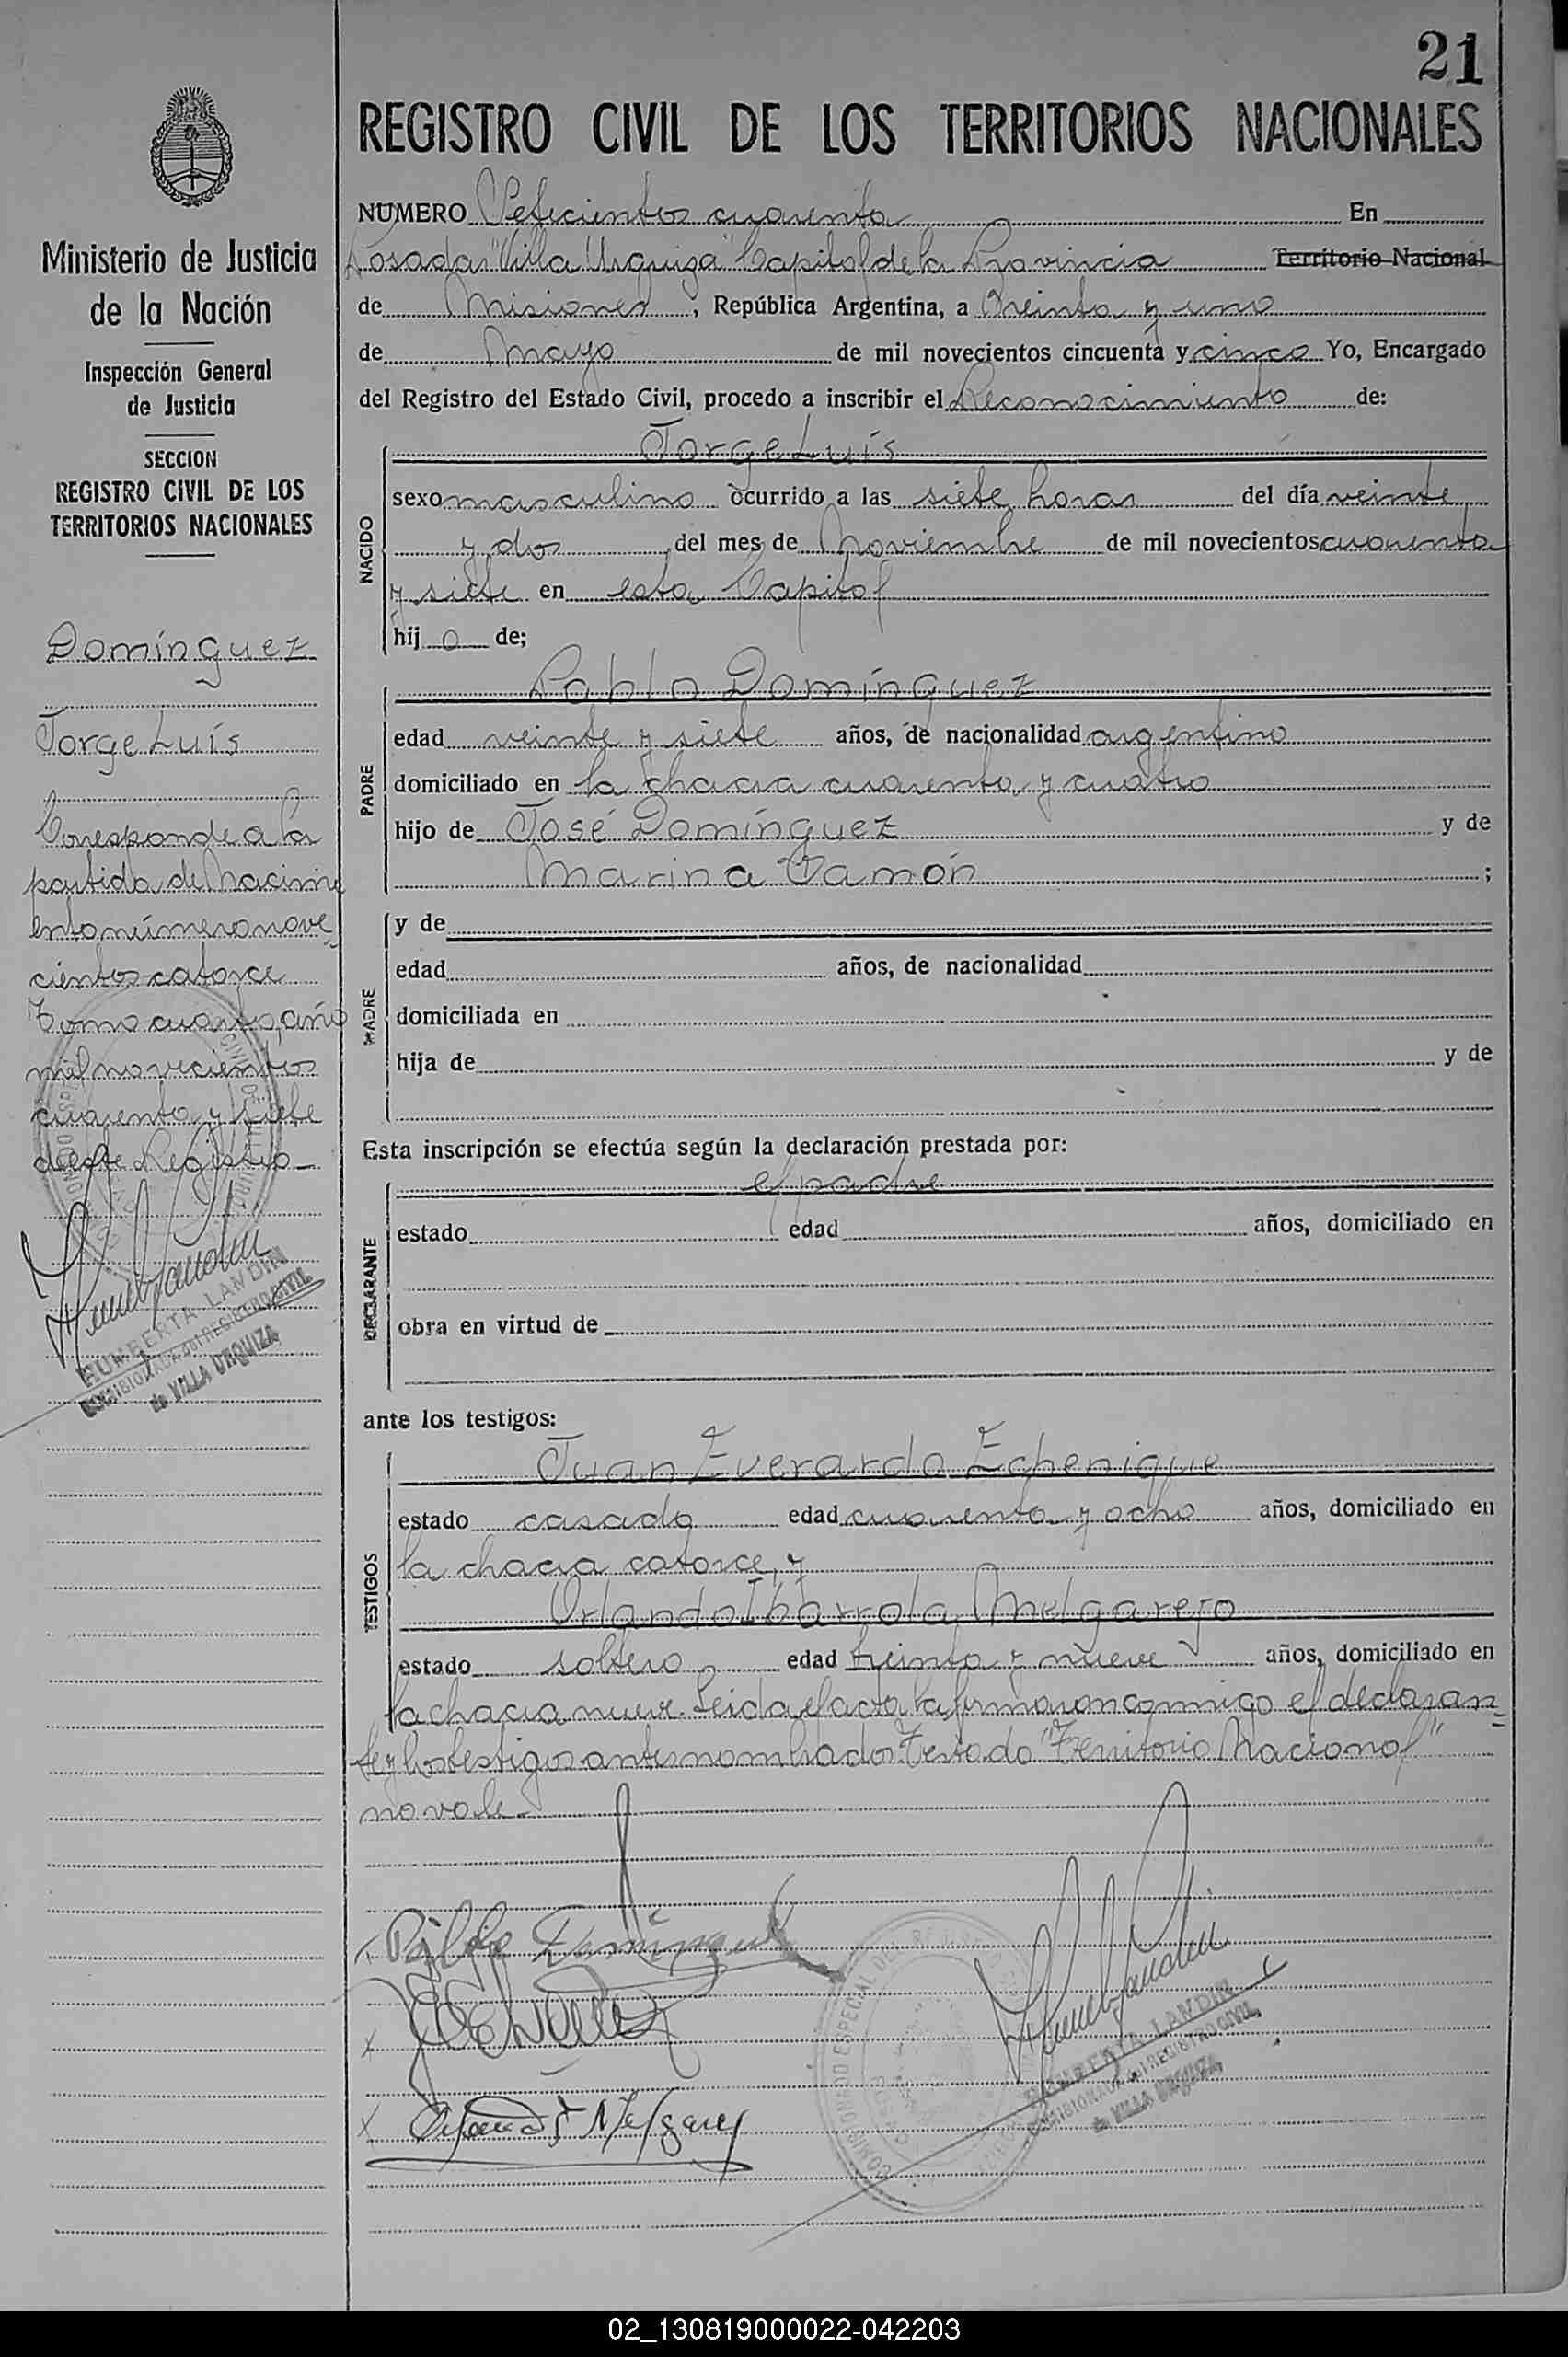 21
REGISTRO CIVIL DE LOS TERRITORIOS NACIONALES
Ministerio de Justicia
de la Nación
Inspección General
de Justicia
SECCION
REGISTRO CIVIL DE LOS
TERRITORIOS NACIONALES
Domínguez
Jorge Luís
Corresponde a la
partida de Nacimi
ento número nove
cientos catorce
Tomo cuarto, año
mil novecientos
cuarenta y siete
de este Registro
HUMBERTA LANDIN
COMISIONADA del REGISTRO CIVIL
de VILLA URQUIZA
NUMERO Setecientos cuarenta En
Posadas "Villa Urquiza" Capital de la Provincia Territorio Nacional
de Misiones, República Argentina, a treinta y uno
de Mayo de mil novecientos cincuenta y cinco Yo, Encargado
del Registro del Estado Civil, procedo a inscribir el Reconocimiento de:
NACIDO
Jorge Luís
sexo masculino ocurrido a las siete horas del día veinte
y dos del mes de Noviembre de mil novecientos cuarenta
y siete en esta Capital
hijo de;
PADRE
Pablo Domínguez
edad veinte y siete años, de nacionalidad argentino
domiciliado en la chacra cuarenta y cuatro
hijo de José Domínguez y de
Marina Ramón ;
MADRE
y de
edad años, de nacionalidad
domiciliada en
hija de y de
Esta inscripción se efectúa según la declaración prestada por:
DECLARANTE
el padre
estado edad años, domiciliado en
obra en virtud de
ante los testigos:
TESTIGOS
Juan Everardo Echenique
estado casado edad cuarenta y ocho años, domiciliado en
la chacra catorce, y
Orlando Ibarrola Melgarejo
estado soltero edad treinta y nueve años, domiciliado en
la chacra nueve. Leida el acta la firmaron conmigo el declaran=
te y los testigos antes nombrados Testado "Territorio Nacional"
no vale.
HUMBERTA LANDIN
COMISIONADA del REGISTRO CIVIL
de VILLA URQUIZA
02_130819000022-042203